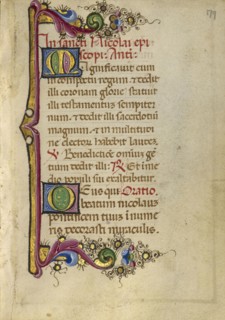 In sancti Nicolai epi
scopi. Anti.
Magnificavit eum
in conspectu regum et dedit
illi coronam glorie statuit
illi testamentum sempiter
num et dedit illi sacerdotium
magnum et in multitudi
ne electorum habebit laudes.
V Benedictione omnium gen
tium dedit illi. R Et in me
dio populi sui exaltabitur.
Deus qui Oratio.
beatum nicolaum
pontificem tuum innume
ris decorasti miraculis.